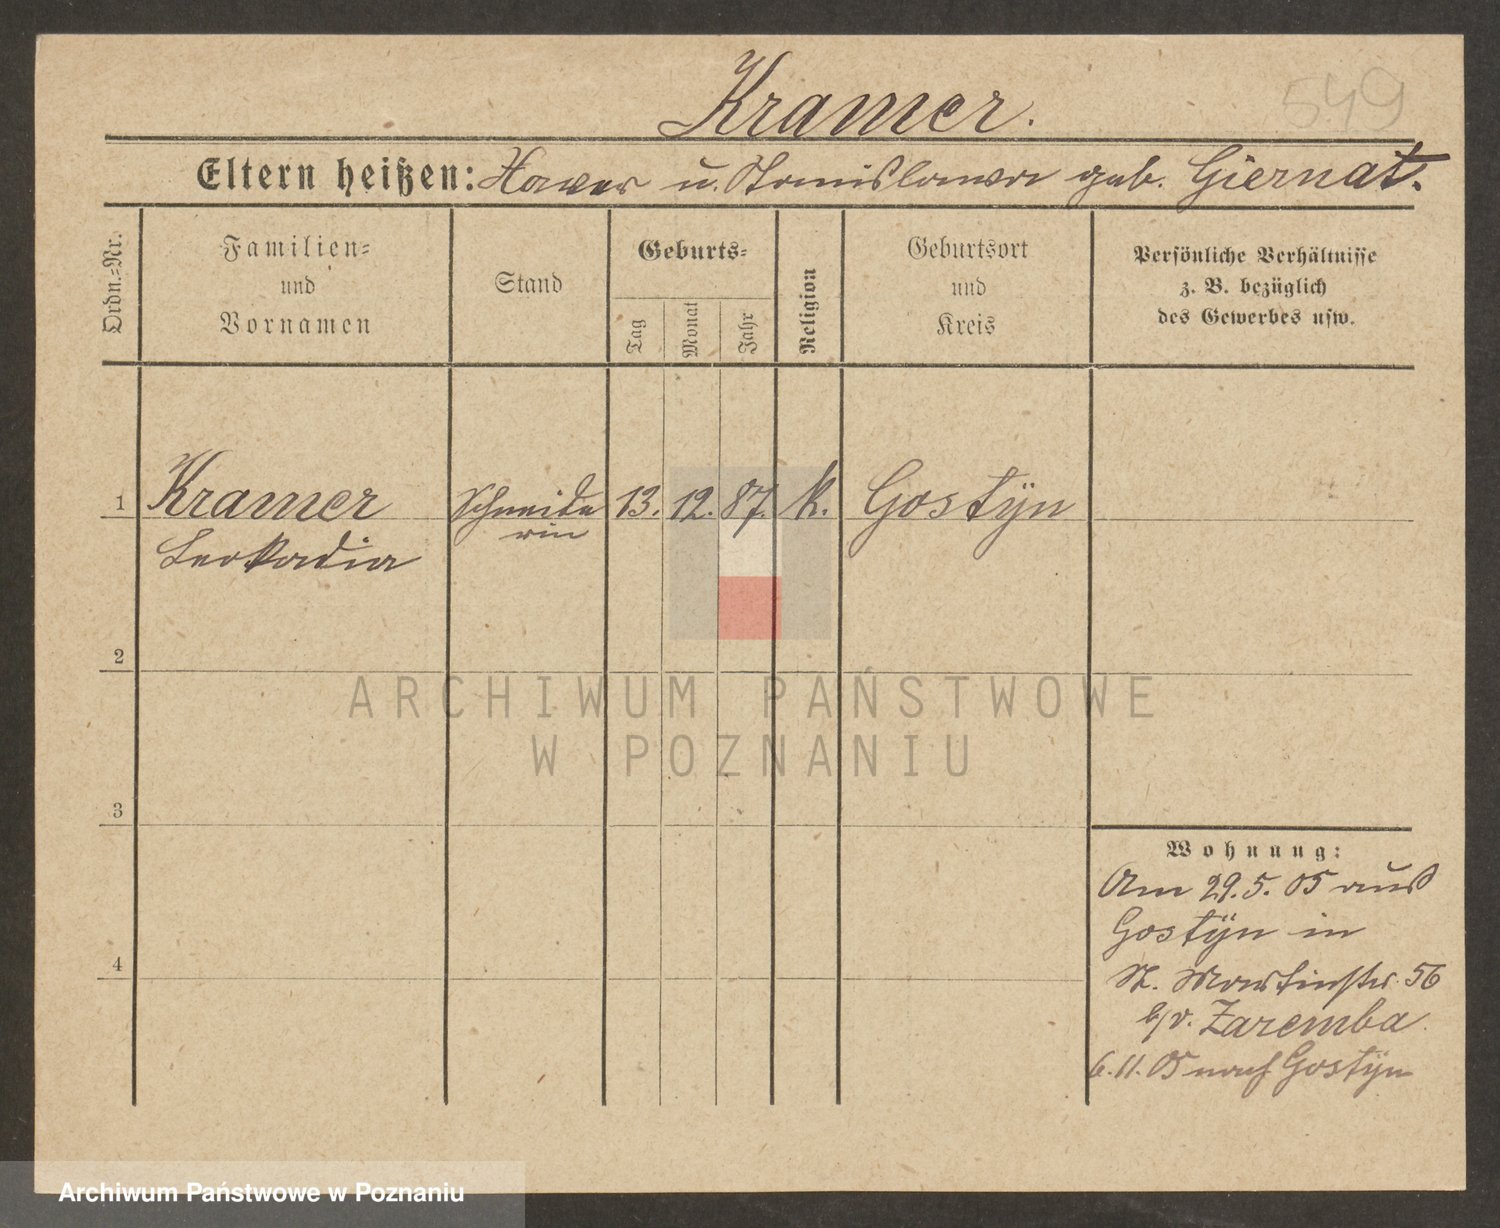 549
Kramer.
Eltern heißen: Xawer u. Stanislawa geb. Giernat.
Ordn.=Nr.
Familien=
und
Vornamen
Stand
Geburts=
Tag
Monat
Jahr
Religion
Geburtsort
und
Kreis
Persönliche Verhältnisse
z. B. bezüglich
des Gewerbes usw.
1 Kramer Schneide 13. 12. 87. k. Gostÿn
rin
Leokadia
2
ARCHIWUM PAŃSTWOWE
W POZNANIU
3
Wohnung:
Am 29.5.05 aus
Gostÿn in
4
St. Martinstr. 56
b/v. Zaremba.
6.11.05 nach Gostÿn
Archiwum Państwowe w Poznaniu